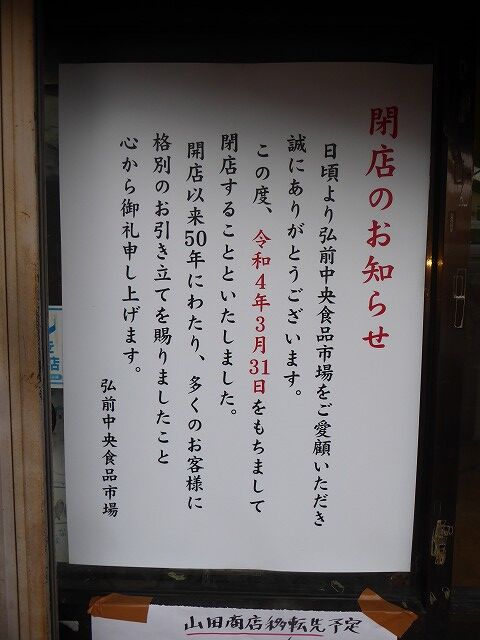 閉店のお知らせ
日頃より弘前中央食品市場をご愛顧いただき
誠にありがとうございます。
この度、令和4年3月31日をもちまして
閉店することといたしました。
開店以来50年にわたり、多くのお客様に
格別のお引き立てを賜りましたこと
心から御礼申し上げます。
弘前中央食品市場
山田商店移転先予定